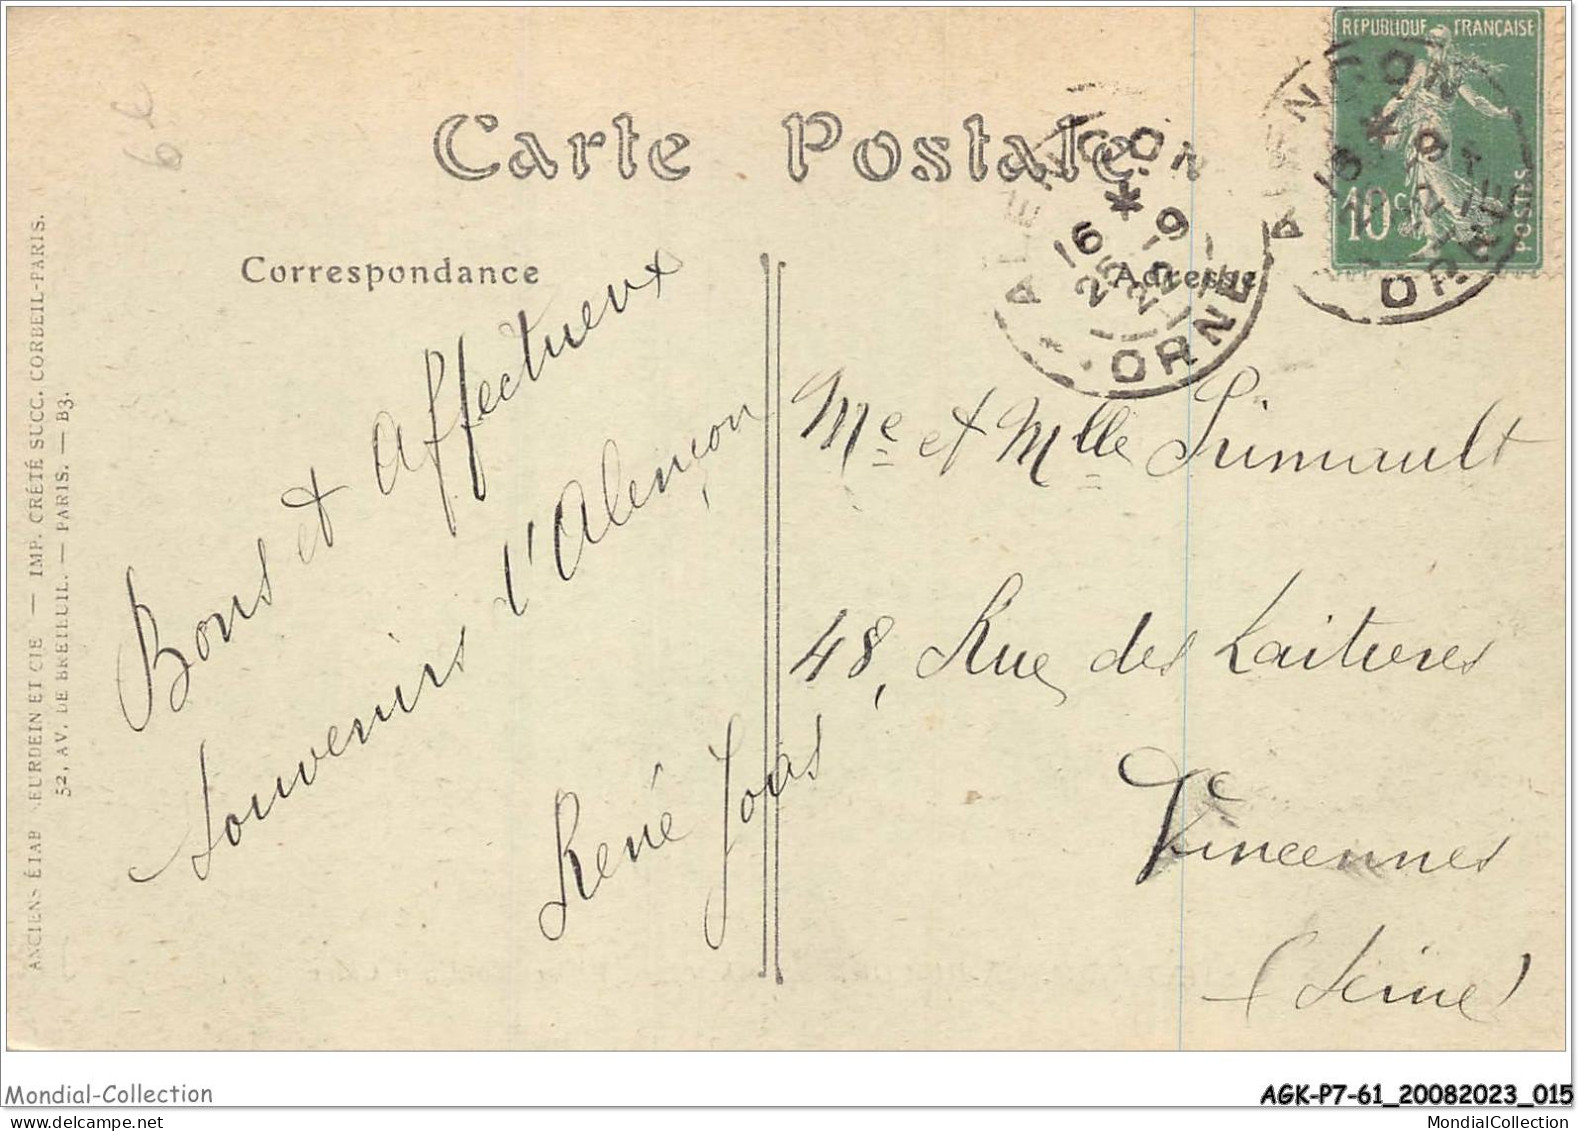 Carte Postale
Correspondance
Adresse
RÉPUBLIQUE FRANÇAISE
10c
POSTES
ALENÇON
16 * 9
25 22
ORNE
ALENÇON
ORNE
Bons et affectueux
souvenirs d'Alençon
René
Me et Mlle
48, Rue des Laitieres
Vincennes
(Seine)
ANCIENS ÉTAB NEURDEIN ET CIE — IMP. CRÉTÉ SUCC. CORBEIL-PARIS.
52, AV. DE BRETEUIL. — PARIS. — B3.
Mondial-Collection
AGK-P7-61_20082023_015
MondialCollection